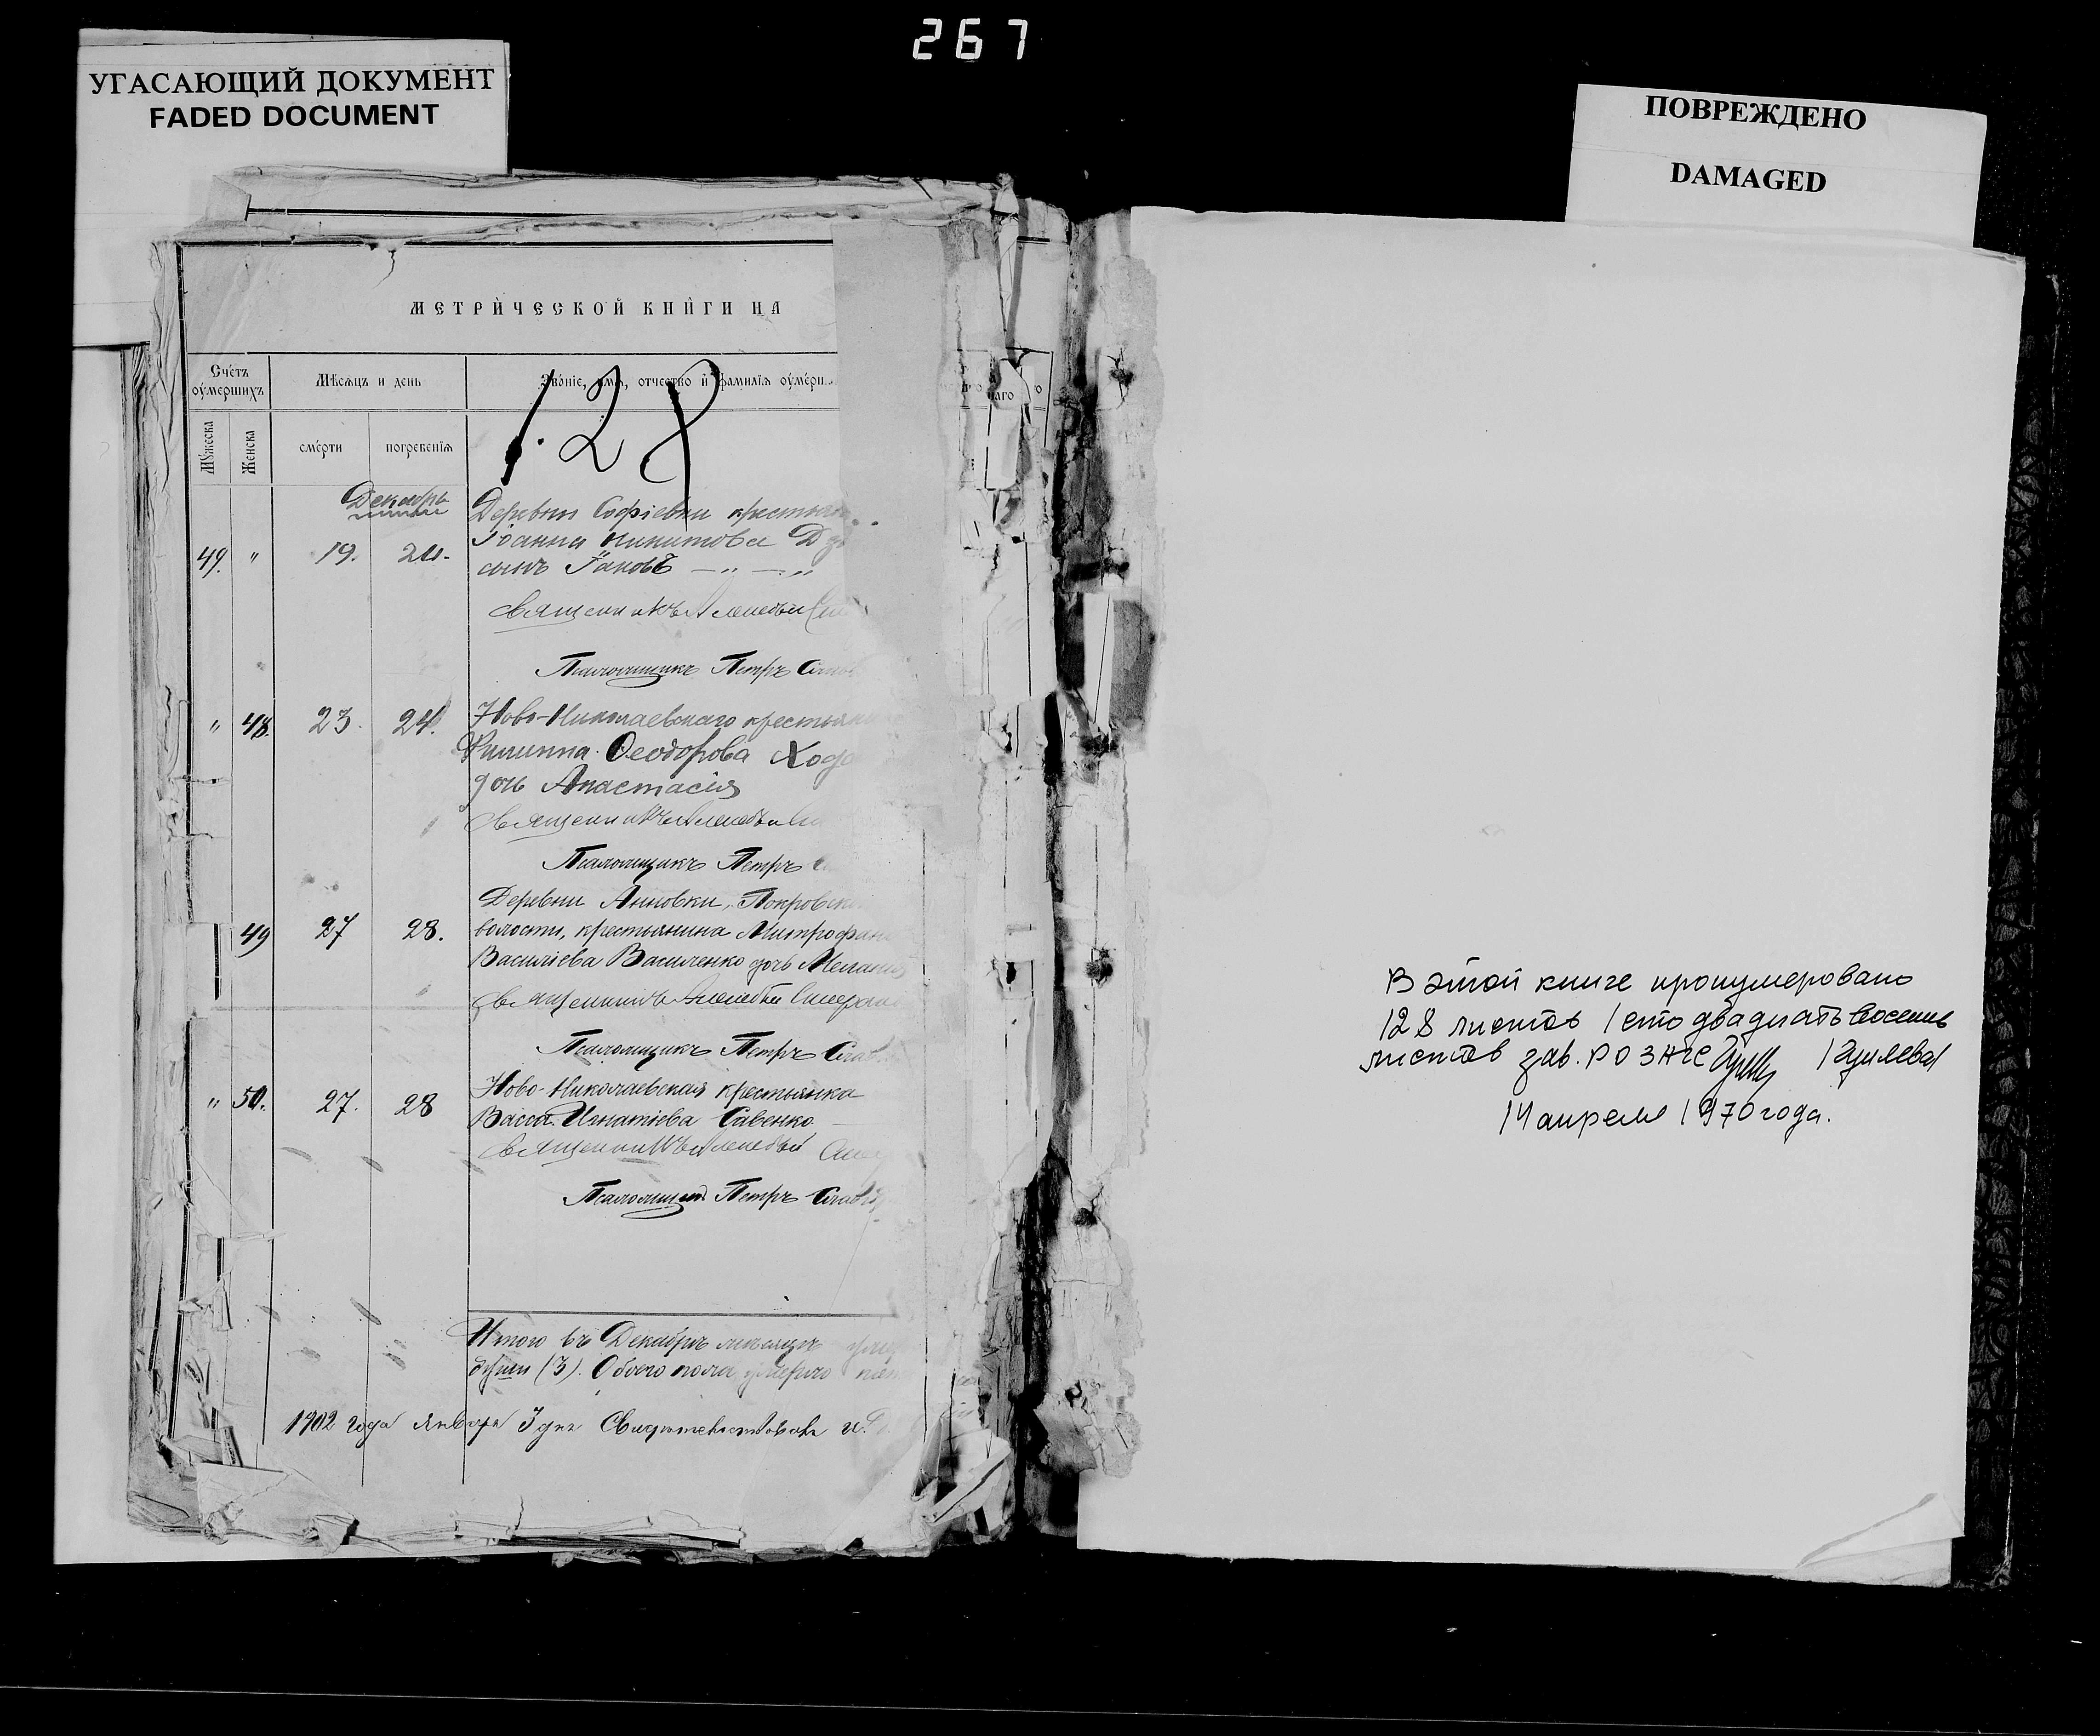 267
УГАСАЮЩИЙ ДОКУМЕНТ
FADED DOCUMENT
ПОВРЕЖДЕНО
DAMAGED
МЕТРИЧЕСКОЙ КНИГИ НА
Счетъ оумершихъ
Мѣсяцъ и день
Званіе, имя, отчество и фамилія оумерш
Мужеска
Женска
смерти
погребенія
128
Декабрь
Деревни Софіевки крестьян
Іоанна Никитова
49. " 19. 20. сынъ Іаковъ — " — "
Священникъ
Псаломщикъ Петръ Слав
" 48. 23. 24. Ново-Николаевскаго крестьян
Филиппа Ѳеодорова Хода
дочь Анастасія
Священникъ
Псаломщикъ Петръ
Деревни Анновки, Покровск
49 27 28. волости, крестьянина Митрофана
Василіева Василенко дочь Меланія
Священникъ
Псаломщикъ Петръ Слав
Ново-Николаевская крестьянка
" 50. 27. 28 Васса Игнатіева Савенко
Священникъ
Псаломщикъ Петръ Слав
Итого въ Декабрѣ мѣсяцѣ
души (3). Обоего пола умерло
1902 года Января 3 дня Свидѣтельствовалъ
В этой книге пронумеровано
128 листов /сто двадцать восемь
листов зав. РОЗАГС
14 апреля 1970 года.